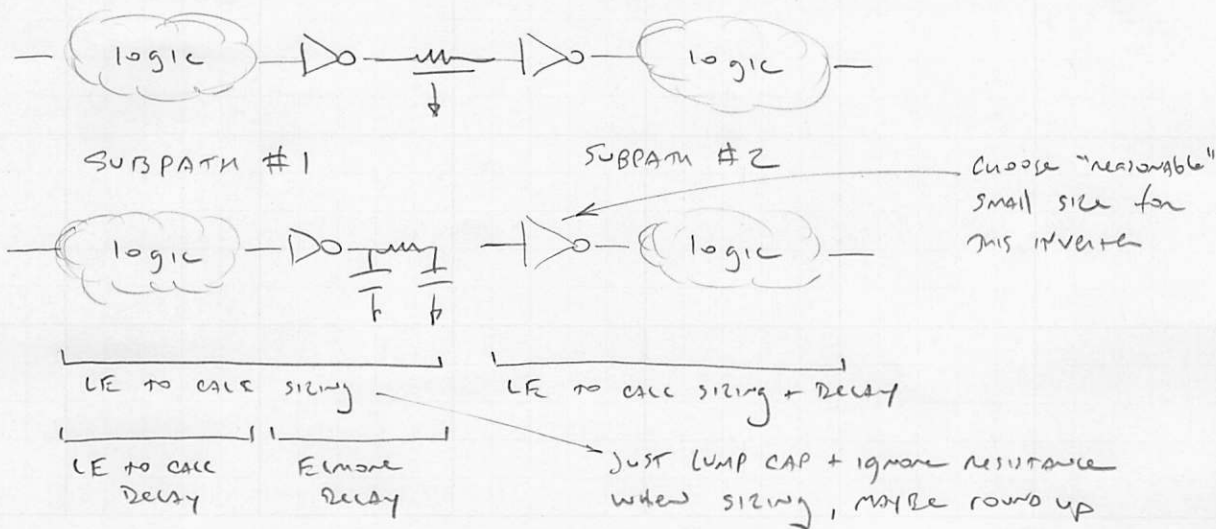 logic
logic
SUBPATH #1
SUBPATH #2
choose "reasonable"
small size for
this inverter
logic
logic
LE to calc sizing
LE to calc sizing + Delay
LE to calc
Delay
Elmore
Delay
Just lump cap + ignore resistance
when sizing, maybe round up